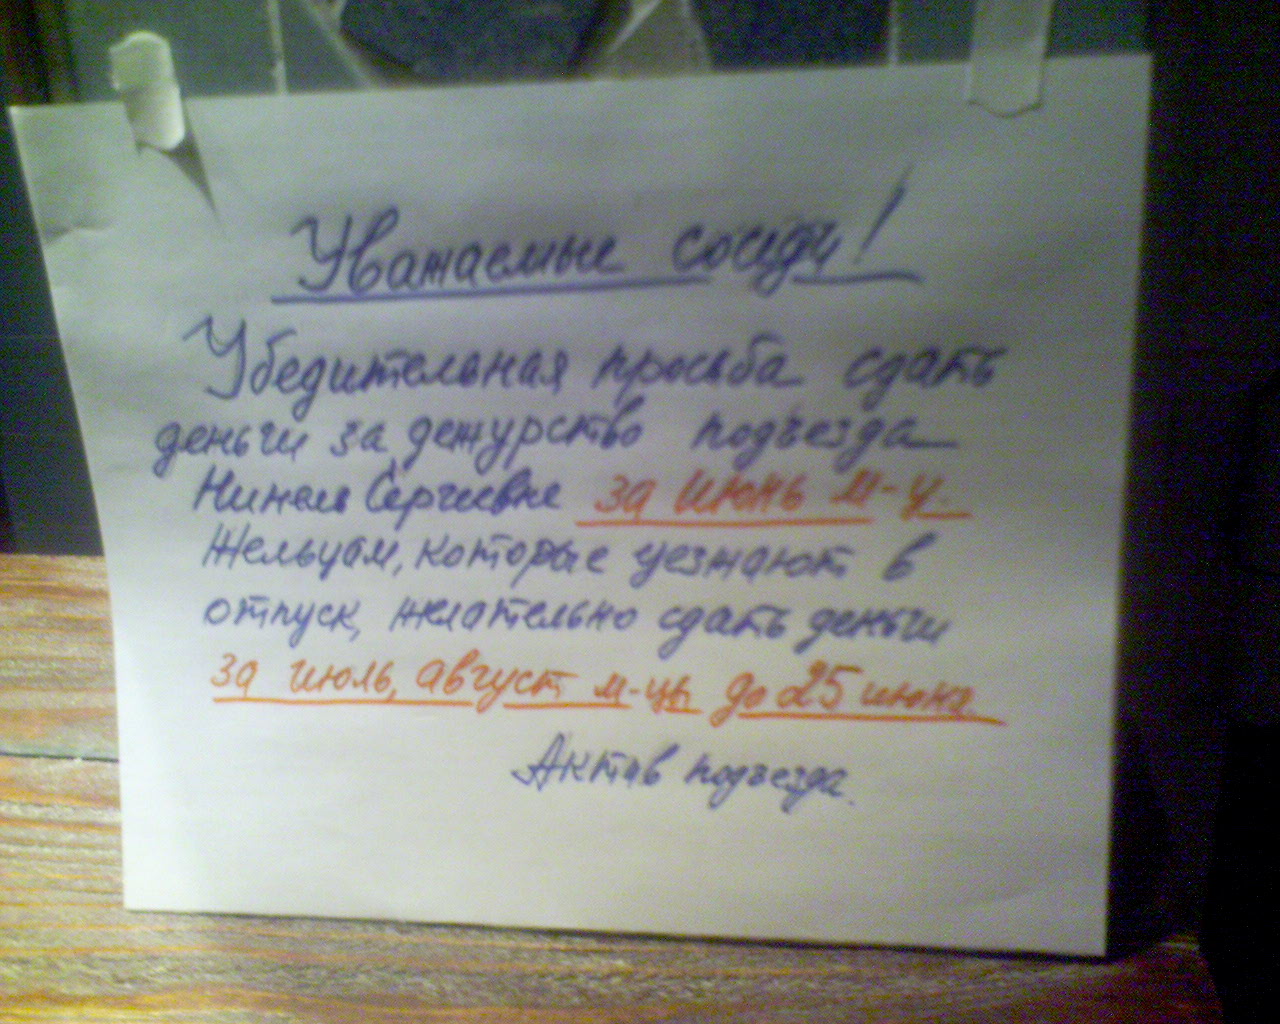 Уважаемые соседи!
Убедительная просьба сдать
деньги за дежурство подъезда
Нинель Сергеевне за июнь м-ц.
Жельцам, которые уезжают в
отпуск, желательно сдать деньги
за июль, август м-цы до 25 июня.
Актив подъезда.